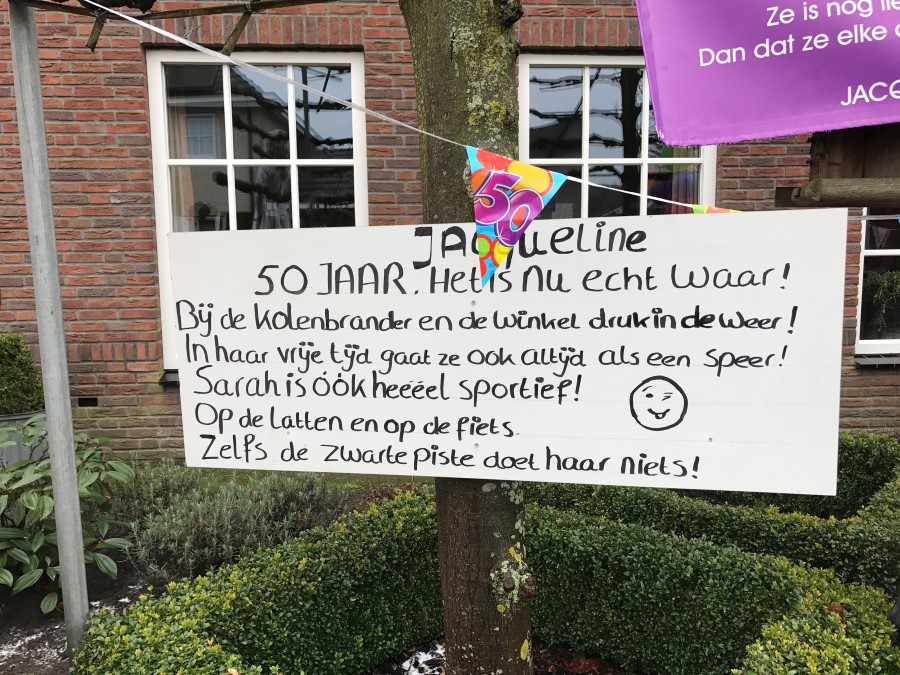 Ze is nog
Dan dat ze elke
50
JACQUELINE
50 JAAR. Het is nu echt waar!
Bij de Kolenbrander en de winkel druk in de weer!
In haar vrije tijd gaat ze ook altijd als een speer!
Sarah is óók heeéel sportief!
Op de latten en op de fiets.
Zelfs de zwarte piste doet haar niets!